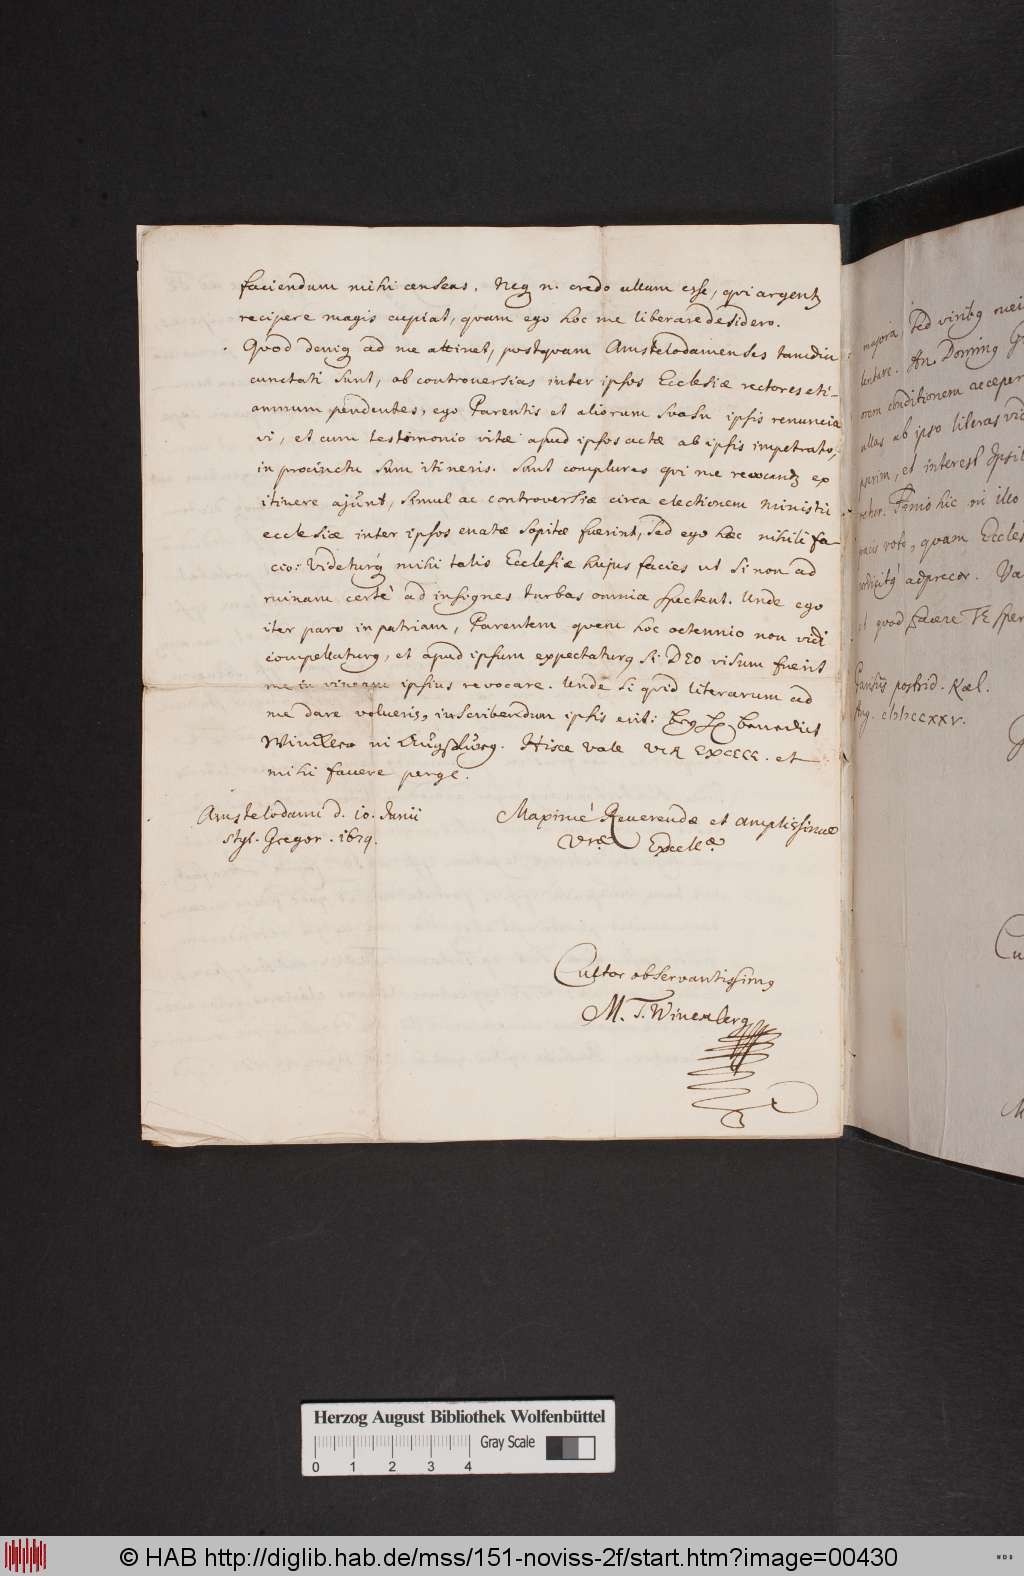 faciendum mihi censeas. Neq n. credo ullum esse, qui argent
recipere magis cupiat, quam ego hoc me liberare desidero.
Quod deniq ad me attinet, postquam Amstelodamenses tamdiu
cunctati sunt, ob controversias inter ipsos Ecclesiæ rectores eti-
amnum pendentes, ego Parentis et aliorum svasu ipsis renuncia
vi, et cum testimonio vitæ apud ipsos actæ ab ipsis impetrato,
in procinctu sum itineris. Sunt complures qui me revocand ex
itinere ajunt, simul ac controversiæ circa electionem ministri
ecclesiæ inter ipsos enatæ sopitæ fuerint, sed ego hæc nihili fa-
cio: Videturq mihi talis Ecclesiæ hujus facies ut si non ad
ruinam certè ad insignes turbas omnia spectent. Unde ego
iter paro in patriam, Parentem quem hoc octennio non vidi
compellaturq, et apud ipsum expectaturq si DEO visum fuerit
me in vineam ipsius revocare. Unde si quid literarum ad
me dare volueris, inscribendum ipsis erit: Benedict
Wincklern in Augspurg. Hisce vale et
mihi favere perge.
Amstelodami d. 10. Junii
styl. Gregor. 1679.
Maximè Reverendæ et amplissimæ
Vræ Excellæ.
Cultor observantissimq
M. T. Winenberg
majora, sed viribq mei
An. Doming
orem conditionem acceper
ullas ab ipso literas vid
et interest
hic in illo
votq, quam Eccles
adprecor. Va
et quod facere TE sper
postrid. Kal.
Aug.
Cu
M
Herzog August Bibliothek Wolfenbüttel
Gray Scale
0 1 2 3 4
© HAB http://diglib.hab.de/mss/151-noviss-2f/start.htm?image=00430